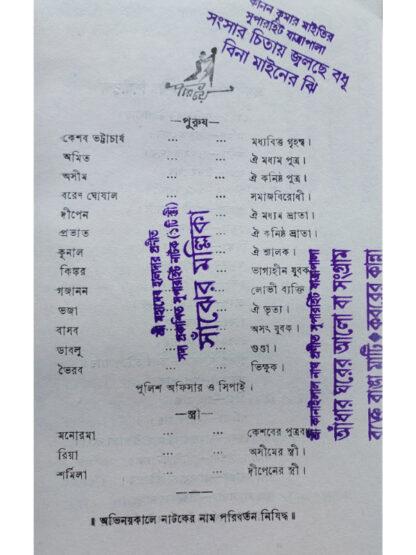 কানন কুমার মাইতির
সুপারহিট যাত্রাপালা
সংসার চিতায় জ্বলছে বধূ
বিনা মাইনের ঝি
পরিচয়
—পুরুষ—
কেশব ভট্টাচার্য ... ... মধ্যবিত্ত গৃহস্থ।
অমিত ... ... ঐ মধ্যম পুত্র।
অসীম ... ... ঐ কনিষ্ঠ পুত্র।
বরেণ ঘোষাল ... ... সমাজবিরোধী।
দীপেন ... ঐ মধ্যম ভ্রাতা।
প্রভাত ... ঐ কনিষ্ঠ ভ্রাতা।
কুনাল ... ঐ শ্যালক।
কিঙ্কর ... ভাগ্যহীন যুবক
গজানন ... লোভী ব্যক্তি
ভজা ... ঐ ভৃত্য।
বাসব ... অসৎ যুবক।
ডাবলু ... গুণ্ডা।
ভৈরব ... ভিক্ষুক।
পুলিশ অফিসার ও সিপাই।
—স্ত্রী—
মনোরমা ... ... কেশবের পুত্রবধূ
রিয়া ... ... অসীমের স্ত্রী।
শর্মিলা ... ... দীপেনের স্ত্রী।
॥ অভিনয়কালে নাটকের নাম পরিবর্তন নিষিদ্ধ ॥
শ্রী মহাদেব হালদার প্রণীত
সদ্য প্রকাশিত সুপারহিট নাটক (১টি স্ত্রী)
সাঁঝের মল্লিকা
শ্রী কানাইলাল নাথ প্রণীত সুপারহিট যাত্রাপালা
আঁধার ঘরের আলো বা সংগ্রাম
রক্তে রাঙা মাটি ♦ কবরের কান্না